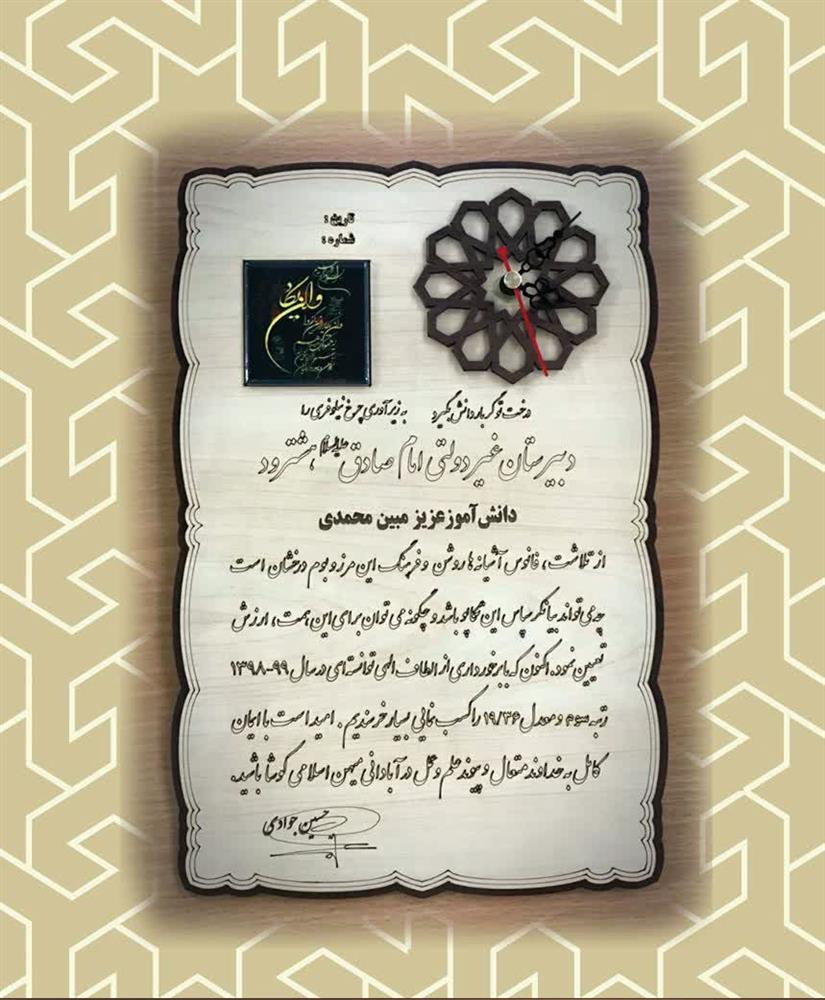 تاریخ :
شماره :
وان یکاد
درخت تو گر بار دانش بگیرد به زیر آوری چرخ نیلوفری را
دبیرستان غیر دولتی امام صادق علیه السلام هشترود
دانش آموز عزیز مبین محمدی
از تلاشت، فانوس آشیانه ها روشن و فرهنگ این مرز و بوم درخشان است
چه می تواند بیانگر سپاس این تکاپو باشد و چگونه می توان برای این همت، ارزش
تعیین نمود. اکنون که با برخورداری از الطاف الهی توانسته ای در سال ۹۹-۱۳۹۸
رتبه سوم و معدل ۱۹/۳۶ را کسب نمایی بسیار خرمندیم . امید است با ایمان
کامل به خداوند متعال و پیوند علم و عمل در آبادانی میهن اسلامی کوشا باشید.
حسین جوادی